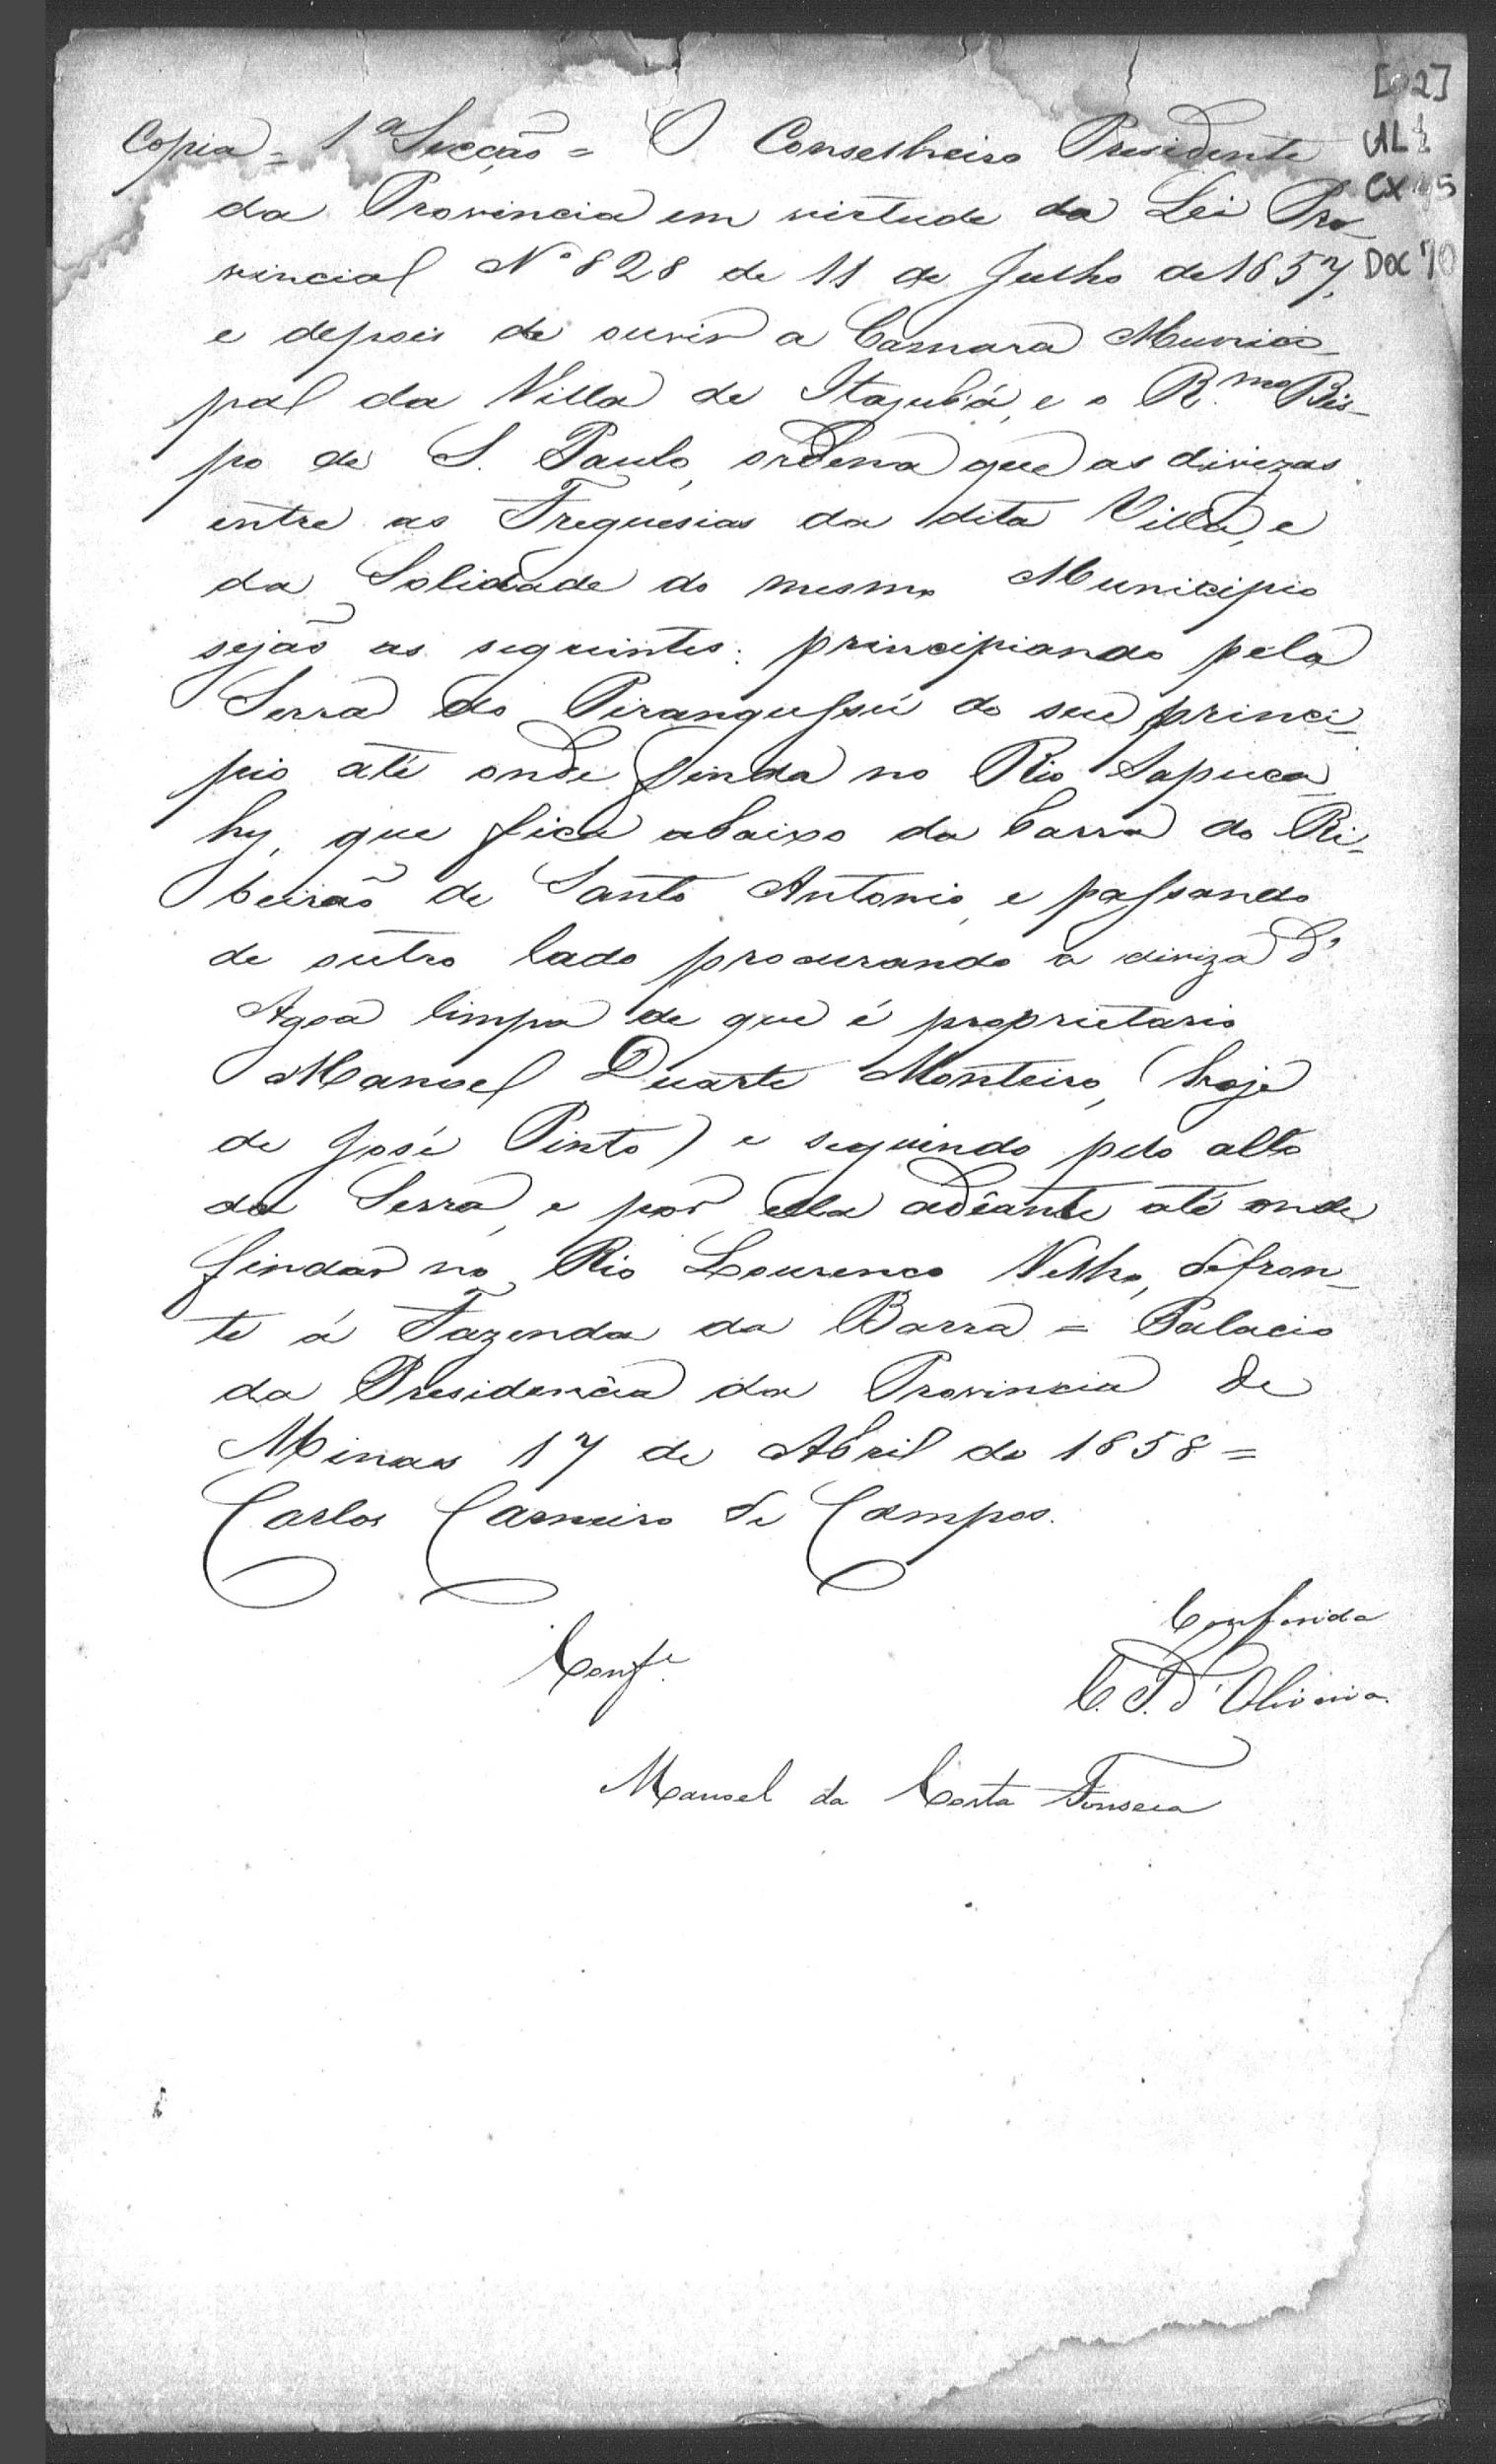 [02]
Copia = 1ª Secção = O Conselheiro Presidente
da Provincia em virtude da Lei Pro-
vincial Nº 828 de 11 de Julho de 1857,
e depois de ouvir a Camara Munici-
pal da Villa de Itajubá, e o R.mo Bis-
po de S. Paulo, ordena que as divizas
entre as Freguesias da dita Villa, e
da Solidade do mesmo Municipio
sejão as seguintes: principiando pela
Serra do Pirangussú do seu princi-
pio até onde finda no Rio Sapuca-
hy, que fica abaixo da barra do Ri-
beirão de Santo Antonio, e passando
de outro lado procurando a diviza d'
Agoa limpa de que é proprietario
Manoel Duarte Monteiro, (hoje
de José Pinto) e seguindo pelo alto
da Serra, e por ella adiante até onde
findar no Rio Lourenco Velho, defron-
te á Fazenda da Barra = Palacio
da Presidencia da Provincia de
Minas 17 de Abril de 1858 =
Carlos Carneiro de Campos.
Conferida
Conf.e
C. T. d'Oliveira.
Manoel da Costa Fonseca
CX
DOC 70